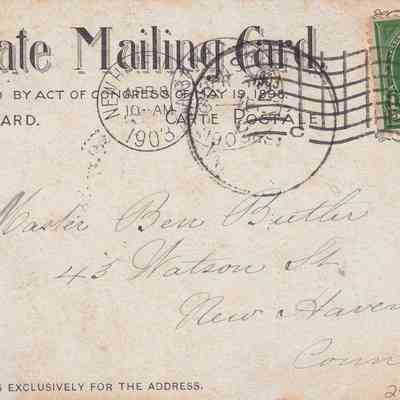 ate Mailing Card.
D BY ACT OF CONGRESS OF MAY 19, 1898.
ARD. CARTE POSTALE.
NEW HAVEN
10-AM
1903
1903
C
Master Ben Butler
45 Watson St.
New Haven
Conn
S EXCLUSIVELY FOR THE ADDRESS.